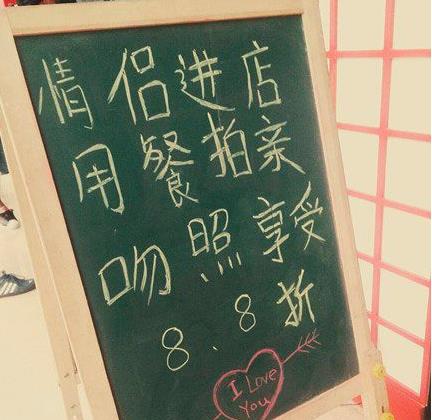 情侣进店
用餐拍亲
吻照享受
8.8折
I Love
You